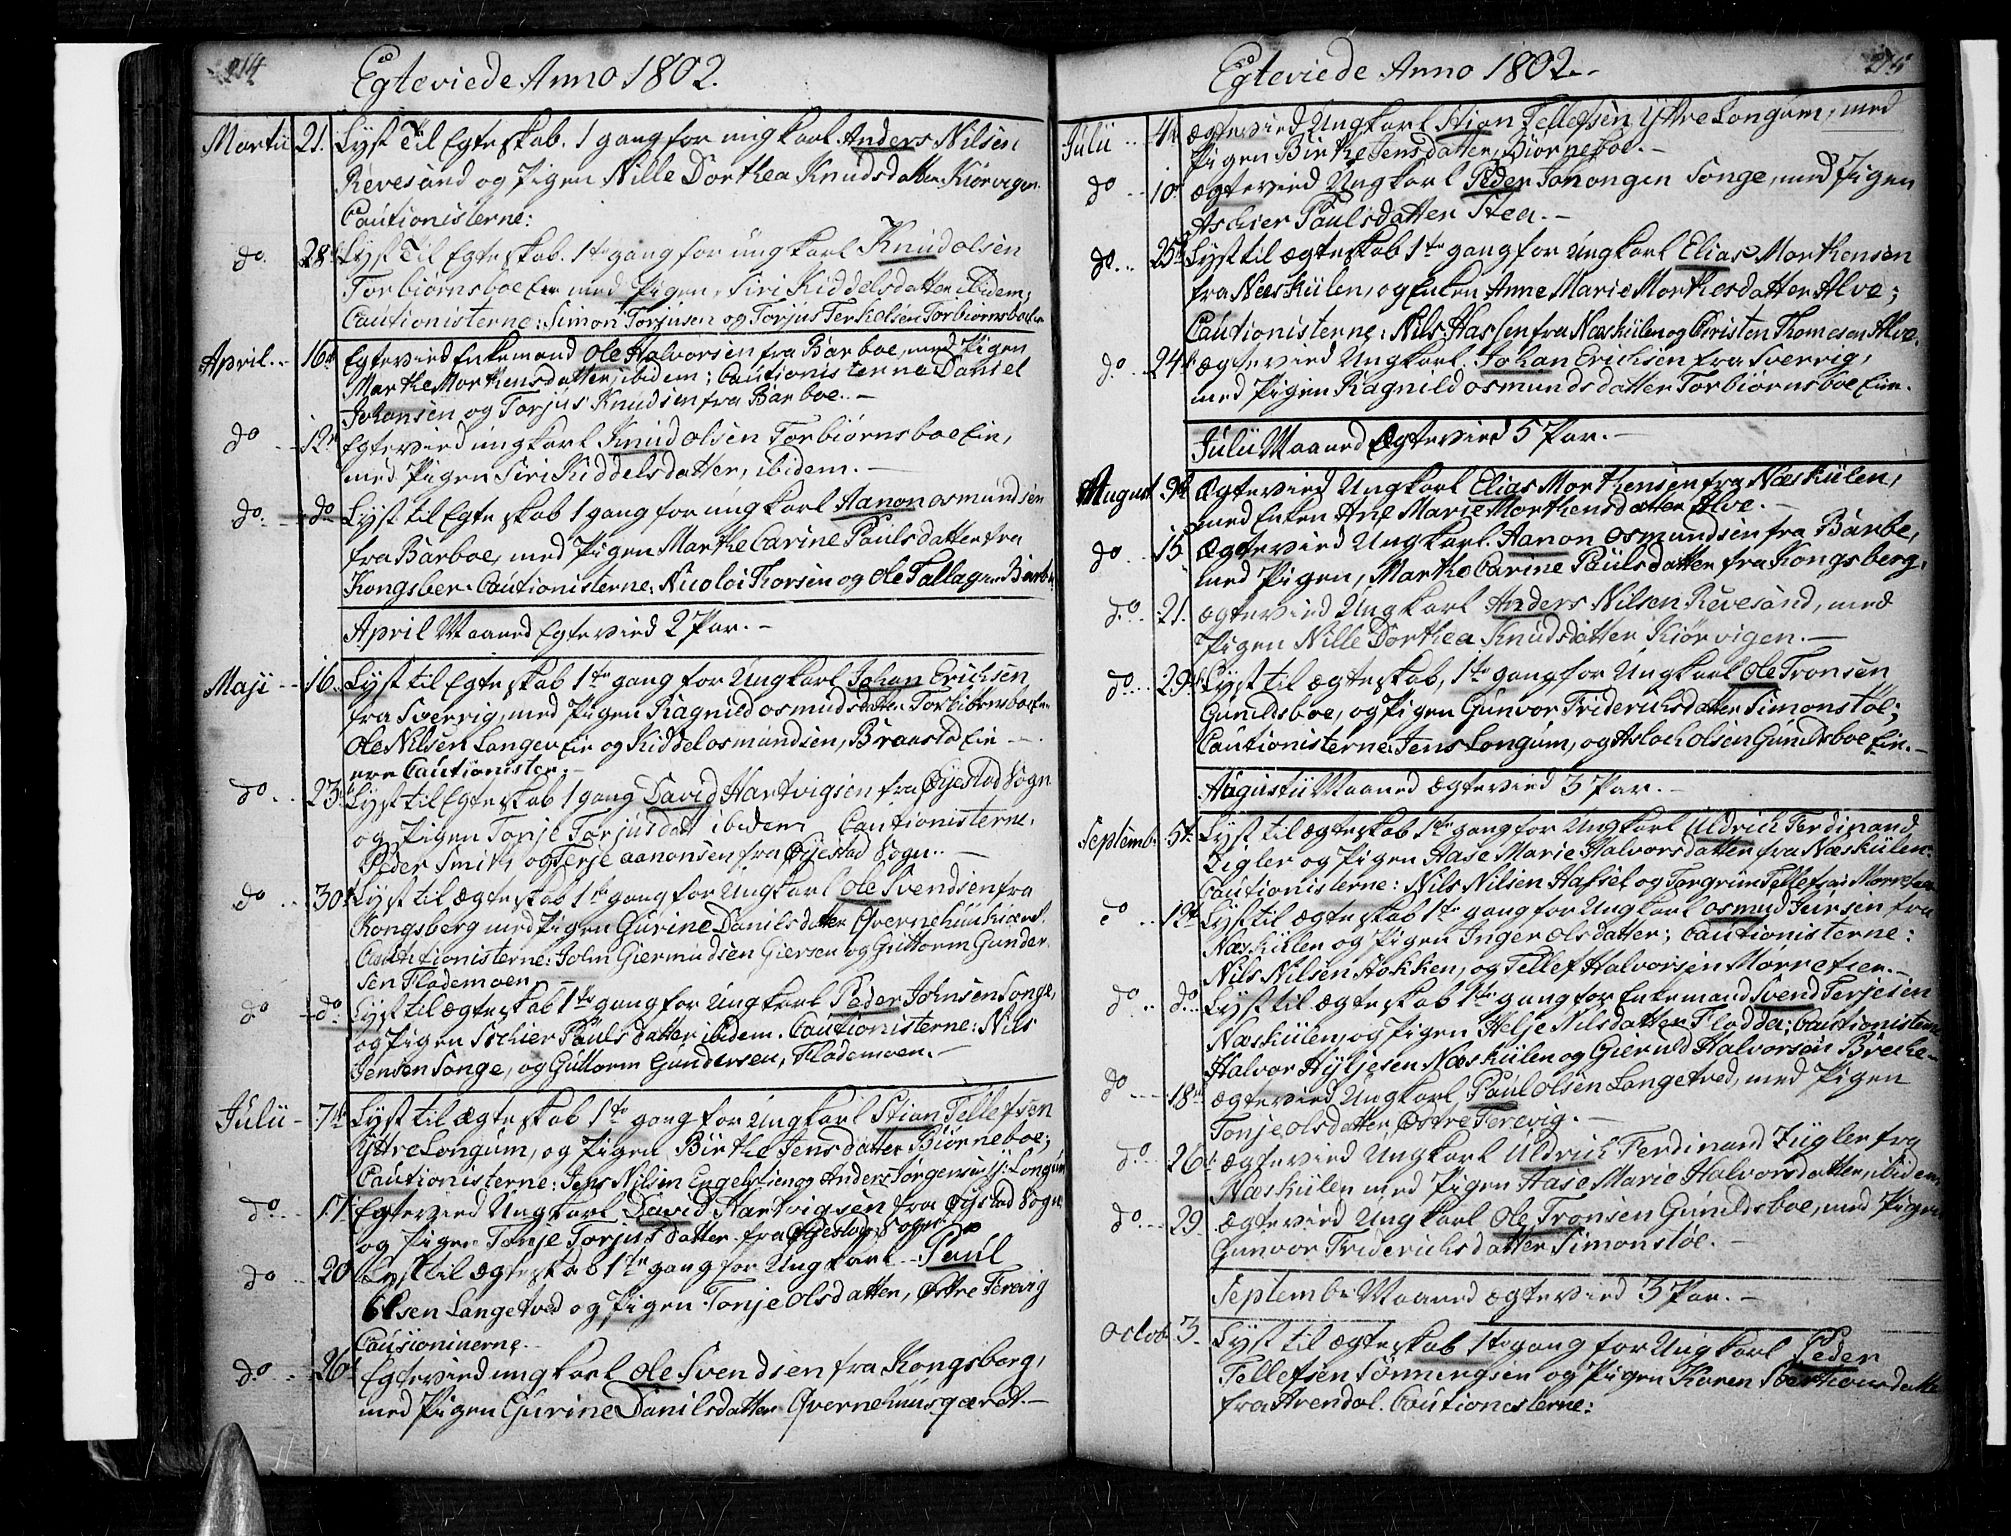 214
Egteviede Anno 1802.
Martii 21. Lyst Til Egteskab. 1 gang for ungkarl Anders Nilsen
Revesand og Pigen Nille Dorthea Knudsdatter Kiørvigen
Cautionisterne:
do. 28 Lyst Til Egteskab. 1te gang for ungkarl Knud olsen
Torbiørnsboe Eie med Pigen, Siri Kiddelsdatter ibidem;
Cautionisterne: Simon Torjusen og Torjus Terkelsen Torbiørnsboe
April 16 Egtevied Enkemand Ole Halvorsen fra Barboe, med Pigen
Marthe Morthensdatter, ibidem; Cautionisterne Daniel
Johansen og Torjus Knudsen fra Barboe. -
do 12 Egtevied ungkarl Knud olsen Torbiørnsboe Eie,
med Pigen Siri Kiddelsdatter, ibidem. -
do. do Lyst til Egteskab 1 gang for ungkarl Aanon osmundsen
fra Barboe, med Pigen Marthe Carine Paulsdatter fra
Kongsber. Cautionisterne: Nicolai Thorsen og Ole Tallagsen Barbo
April Maaned Egtevied 2 Par. -
Maji 16. Lyst til Egteskab 1te gang for Ungkarl Johan Erichsen
fra Sverrig, med Pigen Ragnild osmundsdatter Torbiørnsboe Eie
Ole Nilsen Langev Eie og Kiddel osmundsen, Braastad Eie
ere Cautionister. -
do 23 Lyst til Egteskab 1 gang David Hartvigsen fra Øyestad Sogn
og Pigen Tonje Torjusdat ibidem Cautionisterne.
Peder Smith og Terje aanonsen fra Øyestad Sogn. -
do 30 Lyst til Ægteskab 1te gang for Ungkarl Ole Svendsen fra
Kongsberg med Pigen Gurine Danilsdatter Qvernehuus
Cautitionisterne: John Giermundsen Giersen og Guttorm Gunder
sen Flademoen -
do do. Lyst til Ægteskab 1te gang for Ungkarl Peder Johnsen Songe,
og Pigen Aschier Paulsdatter ibidem. Cautionisterne: Nils
Jensen Songe, og Guttorm Gundersen, Flademoen. -
Julii 7de Lyst til Ægteskab 1te gang for Ungkarl Stian Tellefsen
Yttre Longum, og Pigen Birthe Jensdatter Biørneboe;
Cautionisterne: Jens Nilsen og Anders Jørgensen Y: Longum
do. 17 Egtevied Ungkarl David Hartvigsen fra Øyestad Sogn
og Pigen Tonje Torjusdatter fra Øyestad Sogn
do 20 Lyst til Ægteskab 1te gang for Ungkarl Paul
Olsen Langetved og Pigen Tonje olsdatter, Østre Terevig
Causioninerne -
do. 26 Egtevied ungkarl Ole Svendsen fra Kongsberg,
med Pigen Gurine Danilsdatter Qvernehuusgærdt. -
215
Egteviede Anno 1802. -
Julii 4 Ægtevied Ungkarl Stian Tellefsen Yttre Longum, med
Pigen Birthe Jensdatter, Biørneboe. -
do 10 Ægtevied Ungkarl Peder Jonongen Songe, med Pigen
Aschier Paulsdatter Steen. -
do. 25 Lyst til Ægteskab 1te gang for Ungkarl Elias Morthensen
fra Næskiilen, og Enken Anne Marie Morthesdatter Alve;
Cautionisterne: Nils Haslen fra Næskiilen og Christen Thomesen Alve.
do. 24 Ægtevied Ungkarl Johan Erichsen fra Sverrig,
med Pigen Ragnild osmundsdatter Torbiørnsboe Eie.
Julii Maaned Ægtevied 5 Par. -
August 9 Ægtevied Ungkarl Elias Morthensen fra Næskiilen,
med Enken Ane Marie Morthensdatter Alve. -
do 15 Ægtevied Ungkarl Aanon Osmundsen fra Barbo,
med Pigen, Marthe Carine Paulsdatter fra Kongsberg.
do. 21. Ægtevied Ungkarl Anders Nilsen Revesand, med
Pigen Nille Dorthea Knudsdatter Kiørvigen. -
do. 29 Lyst til Ægteskab, 1te gang for Ungkarl Ole Tronsen
Gunildsboe, og Pigen Gunvor Friderichsdatter Simonstøe;
Cautionisterne Jens Longum, og Asloch olsen Gunildsboe Eie. -
Augustii Maaned Ægtevied 3 Par. -
Septemb: 5t Lyst til Ægteskab 1te gang for Ungkarl Uldrich Ferdinand
Zigler og Pigen Aase Marie Halvorsdatter fra Næskiilen.
Cautionisterne: Nils Nilsen Hafsel og Torgrim Tellefsen
do 12 Lyst til Ægteskab 1te gang for Ungkarl osmud Iversen fra
Næskiilen og Pigen Inger olsdatter; Cautionisterne:
Nils Nilsen Hokken, og Tellef Halvorsen Morrefier. -
do do Lyst til Ægteskab 1te gang for Enkemand Svend Terjesen
Næskiilen, og Pigen Helje Nilsdatter Flodden; Cautionisterne
Halvor Næskiilen og Gierulf Halvorsen Breche -
do 18 Ægtevied Ungkarl Paul Olsen Langetved, med Pigen
Tonje olsdatter, Østre Terevig. -
do. 26 Ægtevied Ungkarl Uldrich Ferdinand Zügler fra
Næskiilen med Pigen Aase Marie Halvorsdatter, ibidem,
do. 29 Ægtevied Ungkarl Ole Tronsen Gunildsboe, med Pigen
Gunvor Friderichsdatter Simonstøe. -
Septembr Maaned Ægtevied 3 Par. -
Octob: 3 Lyst til Ægteskab 1te gang for Ungkarl Peder
Tellefsen og Pigen Karen
fra Arendal. Cautionisterne: